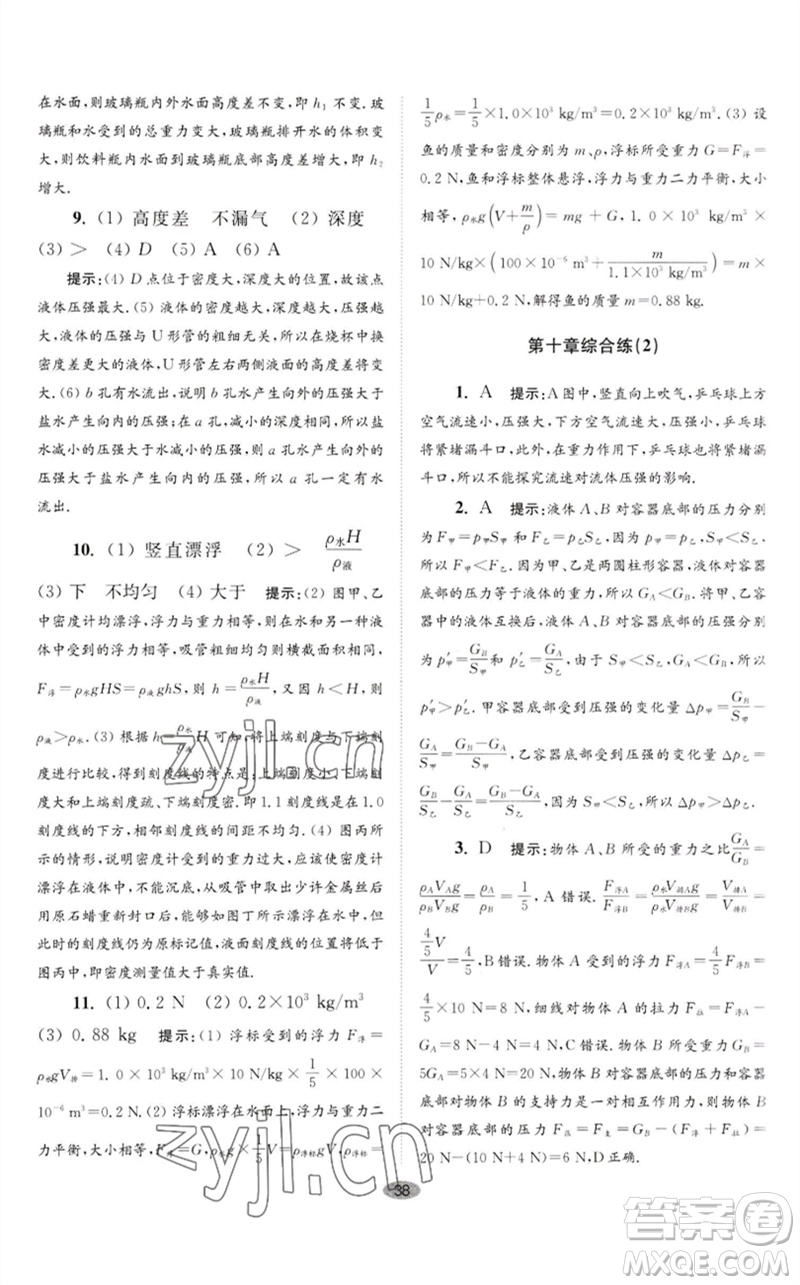 在水面,则玻璃瓶内外水面高度差不变,即 h₁ 不变. 玻
璃瓶和水受到的总重力变大,玻璃瓶排开水的体积变
大,则饮料瓶内水面到玻璃瓶底部高度差增大,即 h₂
增大.
9. (1) 高度差 不漏气 (2) 深度
(3) > (4) D (5) A (6) A
提示:(4) D 点位于密度大,深度大的位置,故该点
液体压强最大. (5) 液体的密度越大,深度越大,压强越
大,液体的压强与 U 形管的粗细无关,所以在烧杯中换
密度差更大的液体,会使 U 形管左右两侧液面的高度差
变大. (6) b 孔有水流出,说明 b 孔水产生向外的压强大于
盐水产生向内的压强;在 a 孔,减小的深度相同,所以盐
水减小的压强大于水减小的压强,即 a 孔水产生向外的
压强大于盐水产生向内的压强,所以 a 孔一定有水
流出.
10. (1) 竖直漂浮 (2) > ρ水H/ρ液
(3) 下 不均匀 (4) 大于 提示:(2) 图甲、乙
中密度计均漂浮,浮力与重力相等,则在水和另一种液
体中受到的浮力相等,吸管粗细均匀则横截面积相等,
F浮=ρ水gHS=ρ液ghS,则 h=ρ水H/ρ液,又因 h<H,则
ρ液>ρ水. (3) 根据 h=ρ水/ρ液 H 可知,将上端刻度与下端刻
度进行比较,得到刻度线的特点是:上端刻度小、下端刻
度大和上端刻度疏、下端刻度密. 即 1.1 刻度线在 1.0
刻度线的下方,相邻刻度线的间距不均匀. (4) 图丙所
示的情形,说明密度计的重力过大,应该使密度计
漂浮在水中,不能沉底,从中取出少许金属丝,
用原石蜡重新封口后,能够如图丁所示漂浮在水中,但
液面刻度线仍为原标记值,液面刻度线的示数偏大于
图丙中,即密度测量值大于真实值.
11. (1) 0.2 N (2) 0.2×10³ kg/m³
(3) 0.88 kg 提示:(1) 浮标受到的浮力 F浮=
ρ水gV排=1.0×10³ kg/m³×10 N/kg×1/5×100×
10⁻⁶ m³=0.2 N. (2) 浮标漂浮在水中,浮力与重力二
力平衡,大小相等,F浮=G,ρ水g×1/5V=ρ浮标gV,ρ浮标=
1/5ρ水=1/5×1.0×10³ kg/m³=0.2×10³ kg/m³. (3) 设
鱼的质量和密度分别为 m、ρ,浮标所受的重力 G=F浮=
0.2 N,鱼和浮标整体悬浮,浮力与重力二力平衡,大小
相等,ρ水g(V+m/ρ)=mg+G, 1.0×10³ kg/m³×
10 N/kg×(100×10⁻⁶ m³+m/1.1×10³ kg/m³)=m×
10 N/kg+0.2 N,解得鱼的质量 m=0.88 kg.
第十章综合练(2)
1. A 提示:A 图中,竖直向上吹气,乒乓球上方
空气流速小,压强大,下方空气流速大,压强小,乒乓球
也将紧堵漏斗口,在重力作用下,乒乓球也将紧堵漏
斗口,所以不能探究流速对流体压强的影响.
2. A 提示:液体 A、B 对容器底部的压力分别
为 F甲=p甲S甲 和 F乙=p乙S乙,因为 p甲=p乙,S甲<S乙,
所以 F甲<F乙. 因为甲、乙是两圆柱形容器,液体对容器
底部的压力等于液体的重力,所以 GA<GB. 将甲、乙容
器中的液体互换后,液体对容器底部的压强分别
为 p′甲=GB/S甲 和 p′乙=GA/S乙,由于 S甲<S乙,GA<GB,所以
p′甲>p′乙. 甲容器底部受到压强的变化量 Δp甲=GB/S甲−
GA/S甲=GB−GA/S甲,乙容器底部受到压强的变化量 Δp乙=
GB/S乙−GA/S乙=GB−GA/S乙,因为 S甲<S乙,所以 Δp甲>Δp乙.
3. D 提示:物体 A、B 所受的重力之比GA/GB=
ρAVAg/ρBVBg=ρA/ρB=1/5,A 错误. F浮A/F浮B=ρ水V排Ag/ρ水V排Bg=V排A/V排B=
4/5V/V=4/5,B 错误. 物体 A 受到的浮力 F浮A=4/5F浮B=
4/5×10 N=8 N,细线对物体 A 的拉力 F拉=F浮A−
GA=8 N−4 N=4 N,C 错误. 物体 B 所受的重力 GB=
5GA=5×4 N=20 N,物体 B 对容器底部的压力和容器
底部对物体 B 的支持力是一对相互作用力,则物体 B
对容器底部的压力 F压=F支=GB−(F浮B+F拉)=
20 N−(10 N+4 N)=6 N,D 正确.
38
zyjl.cn
zyjl.cn
答案圈
MXQE.COM